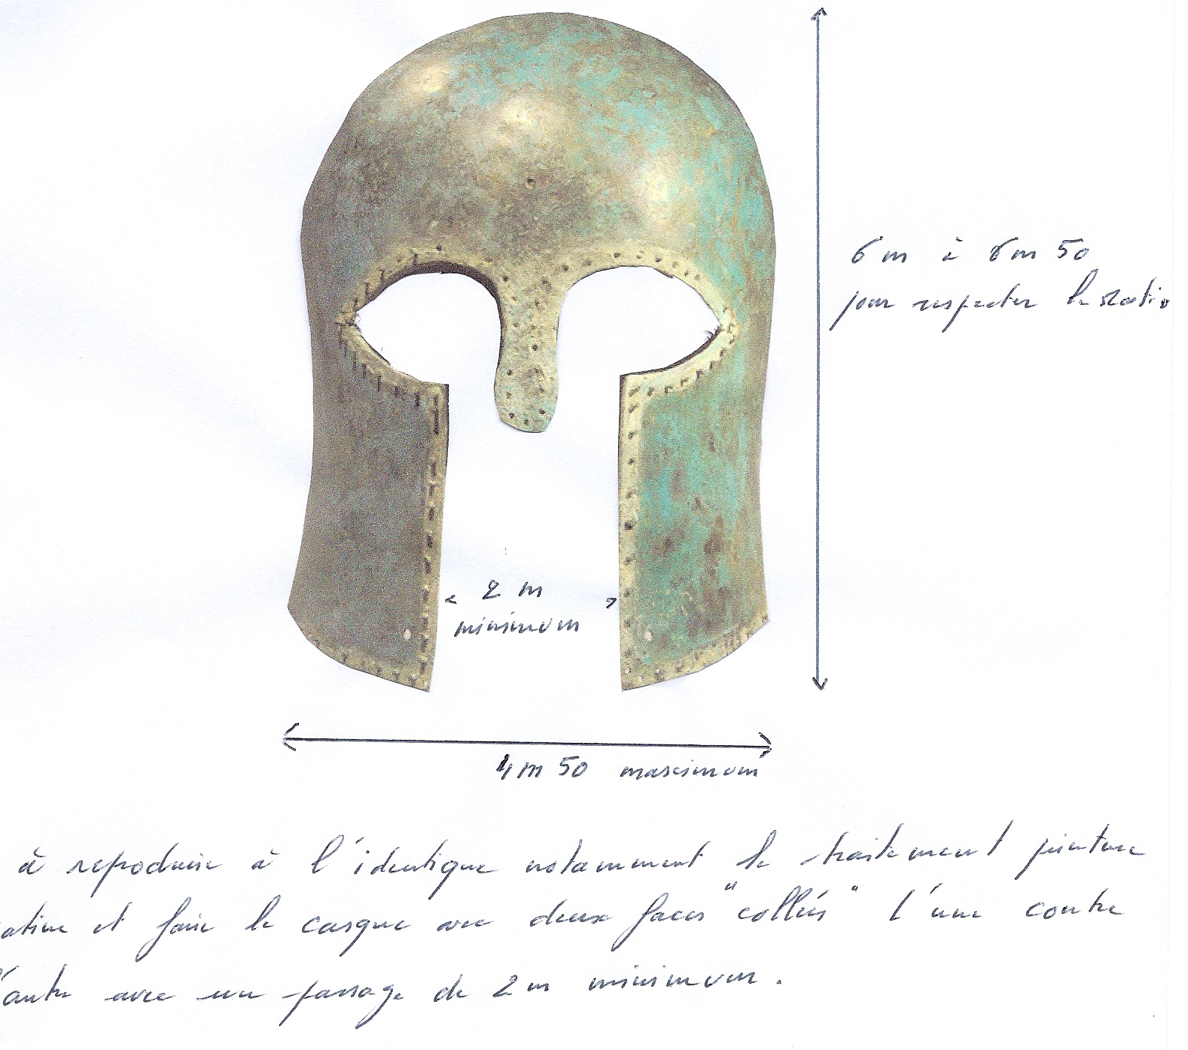 6 m à 6 m 50
pour respecter le ratio
2 m
minimum
4 m 50 maximum
à reproduire à l'identique notamment le traitement peinture
et faire le casque avec deux faces "collées" l'une contre
l'autre avec un passage de 2 m minimum.